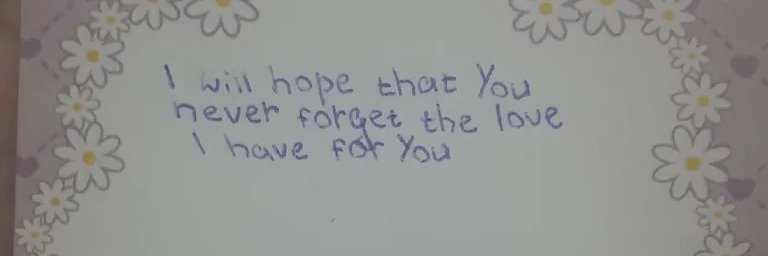 I will hope that You
never forget the love
I have for You